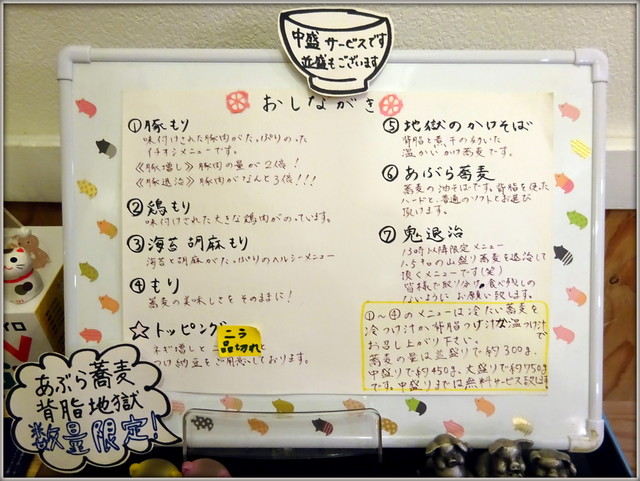 中盛サービスです
並盛もございます
おしながき
①豚もり
味付けされた豚肉がたっぷりのった
イチオシメニューです。
《豚増し》豚肉の量が2倍!
《豚退治》豚肉がなんと3倍!!!
②鶏もり
味付けされた大きな鶏肉がのっています。
③海苔胡麻もり
海苔と胡麻がたっぷりのヘルシーメニュー
④もり
蕎麦の美味しさをそのままに!
☆トッピング
ニラ
品切れ
ネギ増しと
つけ納豆をご用意しております。
⑤地獄のかけそば
背脂と煮干の効いた
温かいかけ蕎麦です。
⑥あぶら蕎麦
蕎麦の油そばです。背脂を使った
ハードと、普通のソフトとお選び
頂けます。
⑦鬼退治
13時以降限定メニュー
1.5キロの山盛り蕎麦を退治して
頂くメニューです(笑)
皆様で取り分け、食べ残しの
ないようにお願い致します。
①〜④のメニューは冷たい蕎麦を
冷つけ汁か背脂つけ汁な温つけ汁で
お召し上がり下さい。
蕎麦の量は並盛りで約300g、
中盛りで約450g、大盛りで約750g
です。中盛りまでは無料サービス致します
あぶら蕎麦
背脂地獄
数量限定!